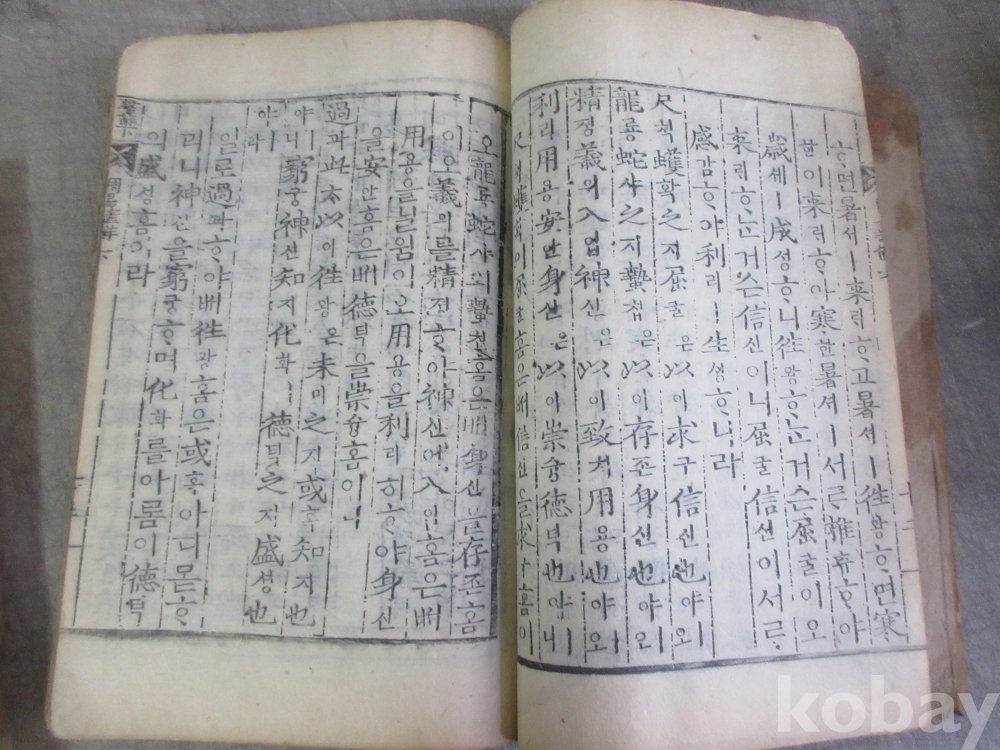 ᄒᆞ면暑셔ㅣ来ᄅᆡᄒᆞ고暑셔ㅣ徃황ᄒᆞ면寒
한이来ᄅᆡᄒᆞ야寒한暑셔ㅣ서르推츄ᄒᆞ야
歲셰ㅣ成셩ᄒᆞᄂᆞ니徃왕ᄒᆞᄂᆞᆫ거슨屈굴이오
来ᄅᆡᄒᆞᄂᆞᆫ거슨信신이니屈굴信신이서르
感감ᄒᆞ야利리ㅣ生ᄉᆡᆼᄒᆞᄂᆞ니라
尺쳑蠖확之지屈굴은以이求구信신也야ㅣ오
龍룡蛇샤之지蟄칩은以이存존身신也야ㅣ오
精졍義의入입神신은以이致치用용也야ㅣ오
利리用용安안身신은以이崇슝德덕也야ㅣ니
尺쳑蠖확의屈굴홈은ᄡᅥ信신을求구홈이
오龍룡蛇샤의蟄칩홈은ᄡᅥ身신을存존홈
이오義의를精졍ᄒᆞ야神신에入입홈은ᄡᅥ
用용을닐윔이오用용을利리히ᄒᆞ야身신
을安안홈은ᄡᅥ德덕을崇슝홈이니
過과此ᄎᆞ以이徃왕은未미之지或혹知지也
야ㅣ니窮궁神신知지化화ㅣ德덕之지盛셩也
야ㅣ라
일로過과ᄒᆞ야ᄡᅥ徃왕홈은或혹아디몯ᄒᆞ
리니神신을窮궁ᄒᆞ며化화를아롬이德덕
의盛셩홈이라
kobay